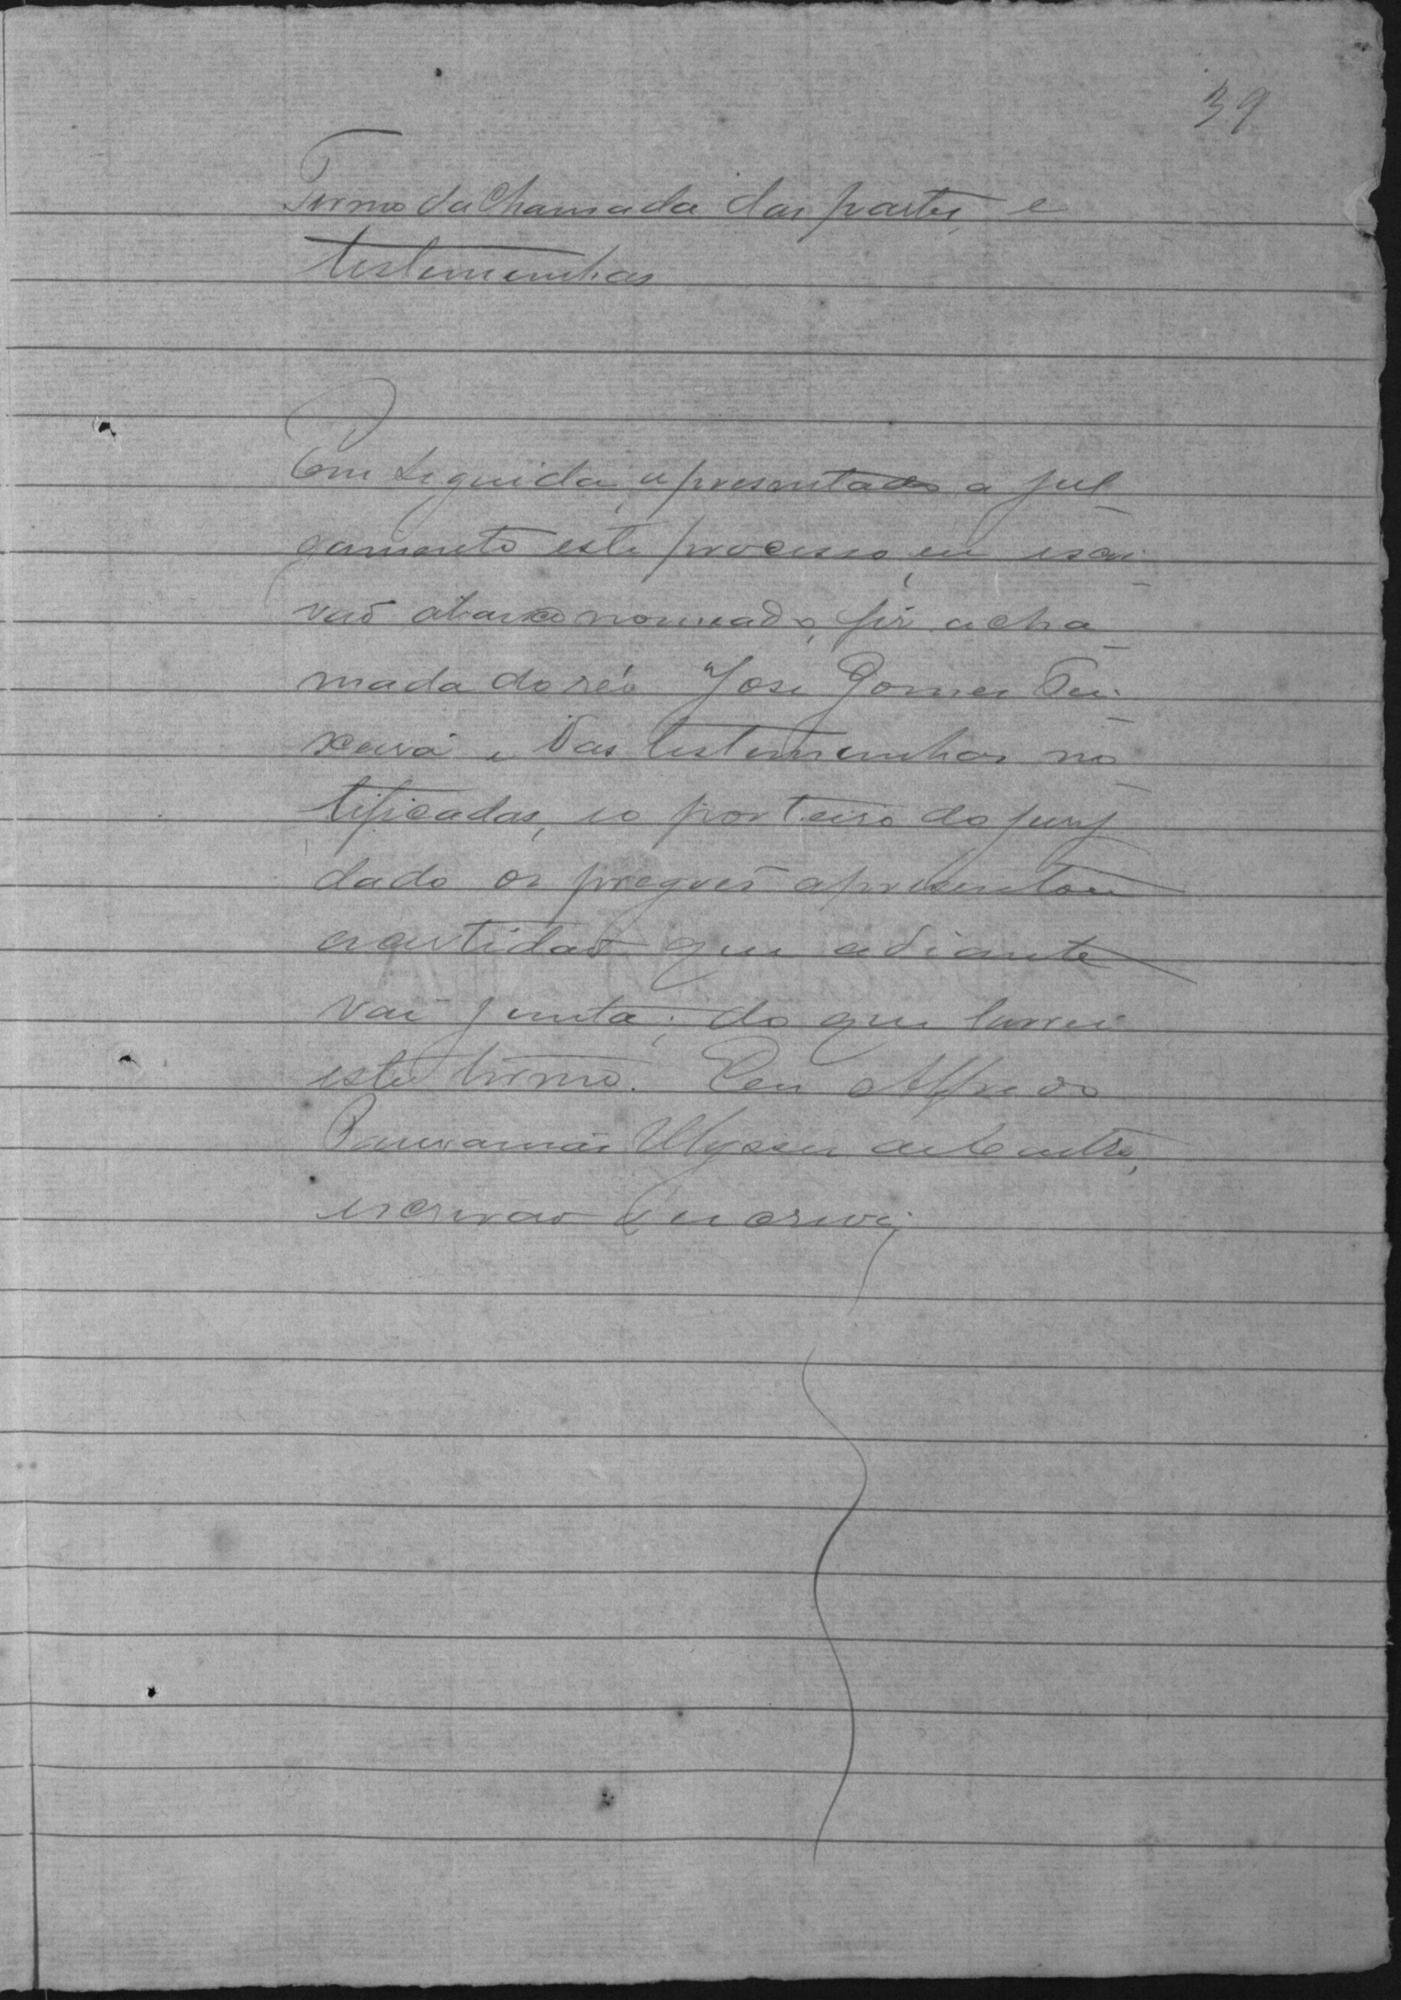 39
Termo da chamada das partes e
testemunhas
Em seguida, apresentado a jul
gamento este processo, eu escri
vaõ abaixo nomeado, fiz a cha
mada do réo José Gomes Tei
xeira e das testemunhas no
tificadas, e o porteiro do jury
dado os pregoẽs apresentou
a certidaõ que adiante
vai junta; do que lavrei
este termo. Eu Alfredo
Ulysses de Castro,
escrivaõ o escrevi,